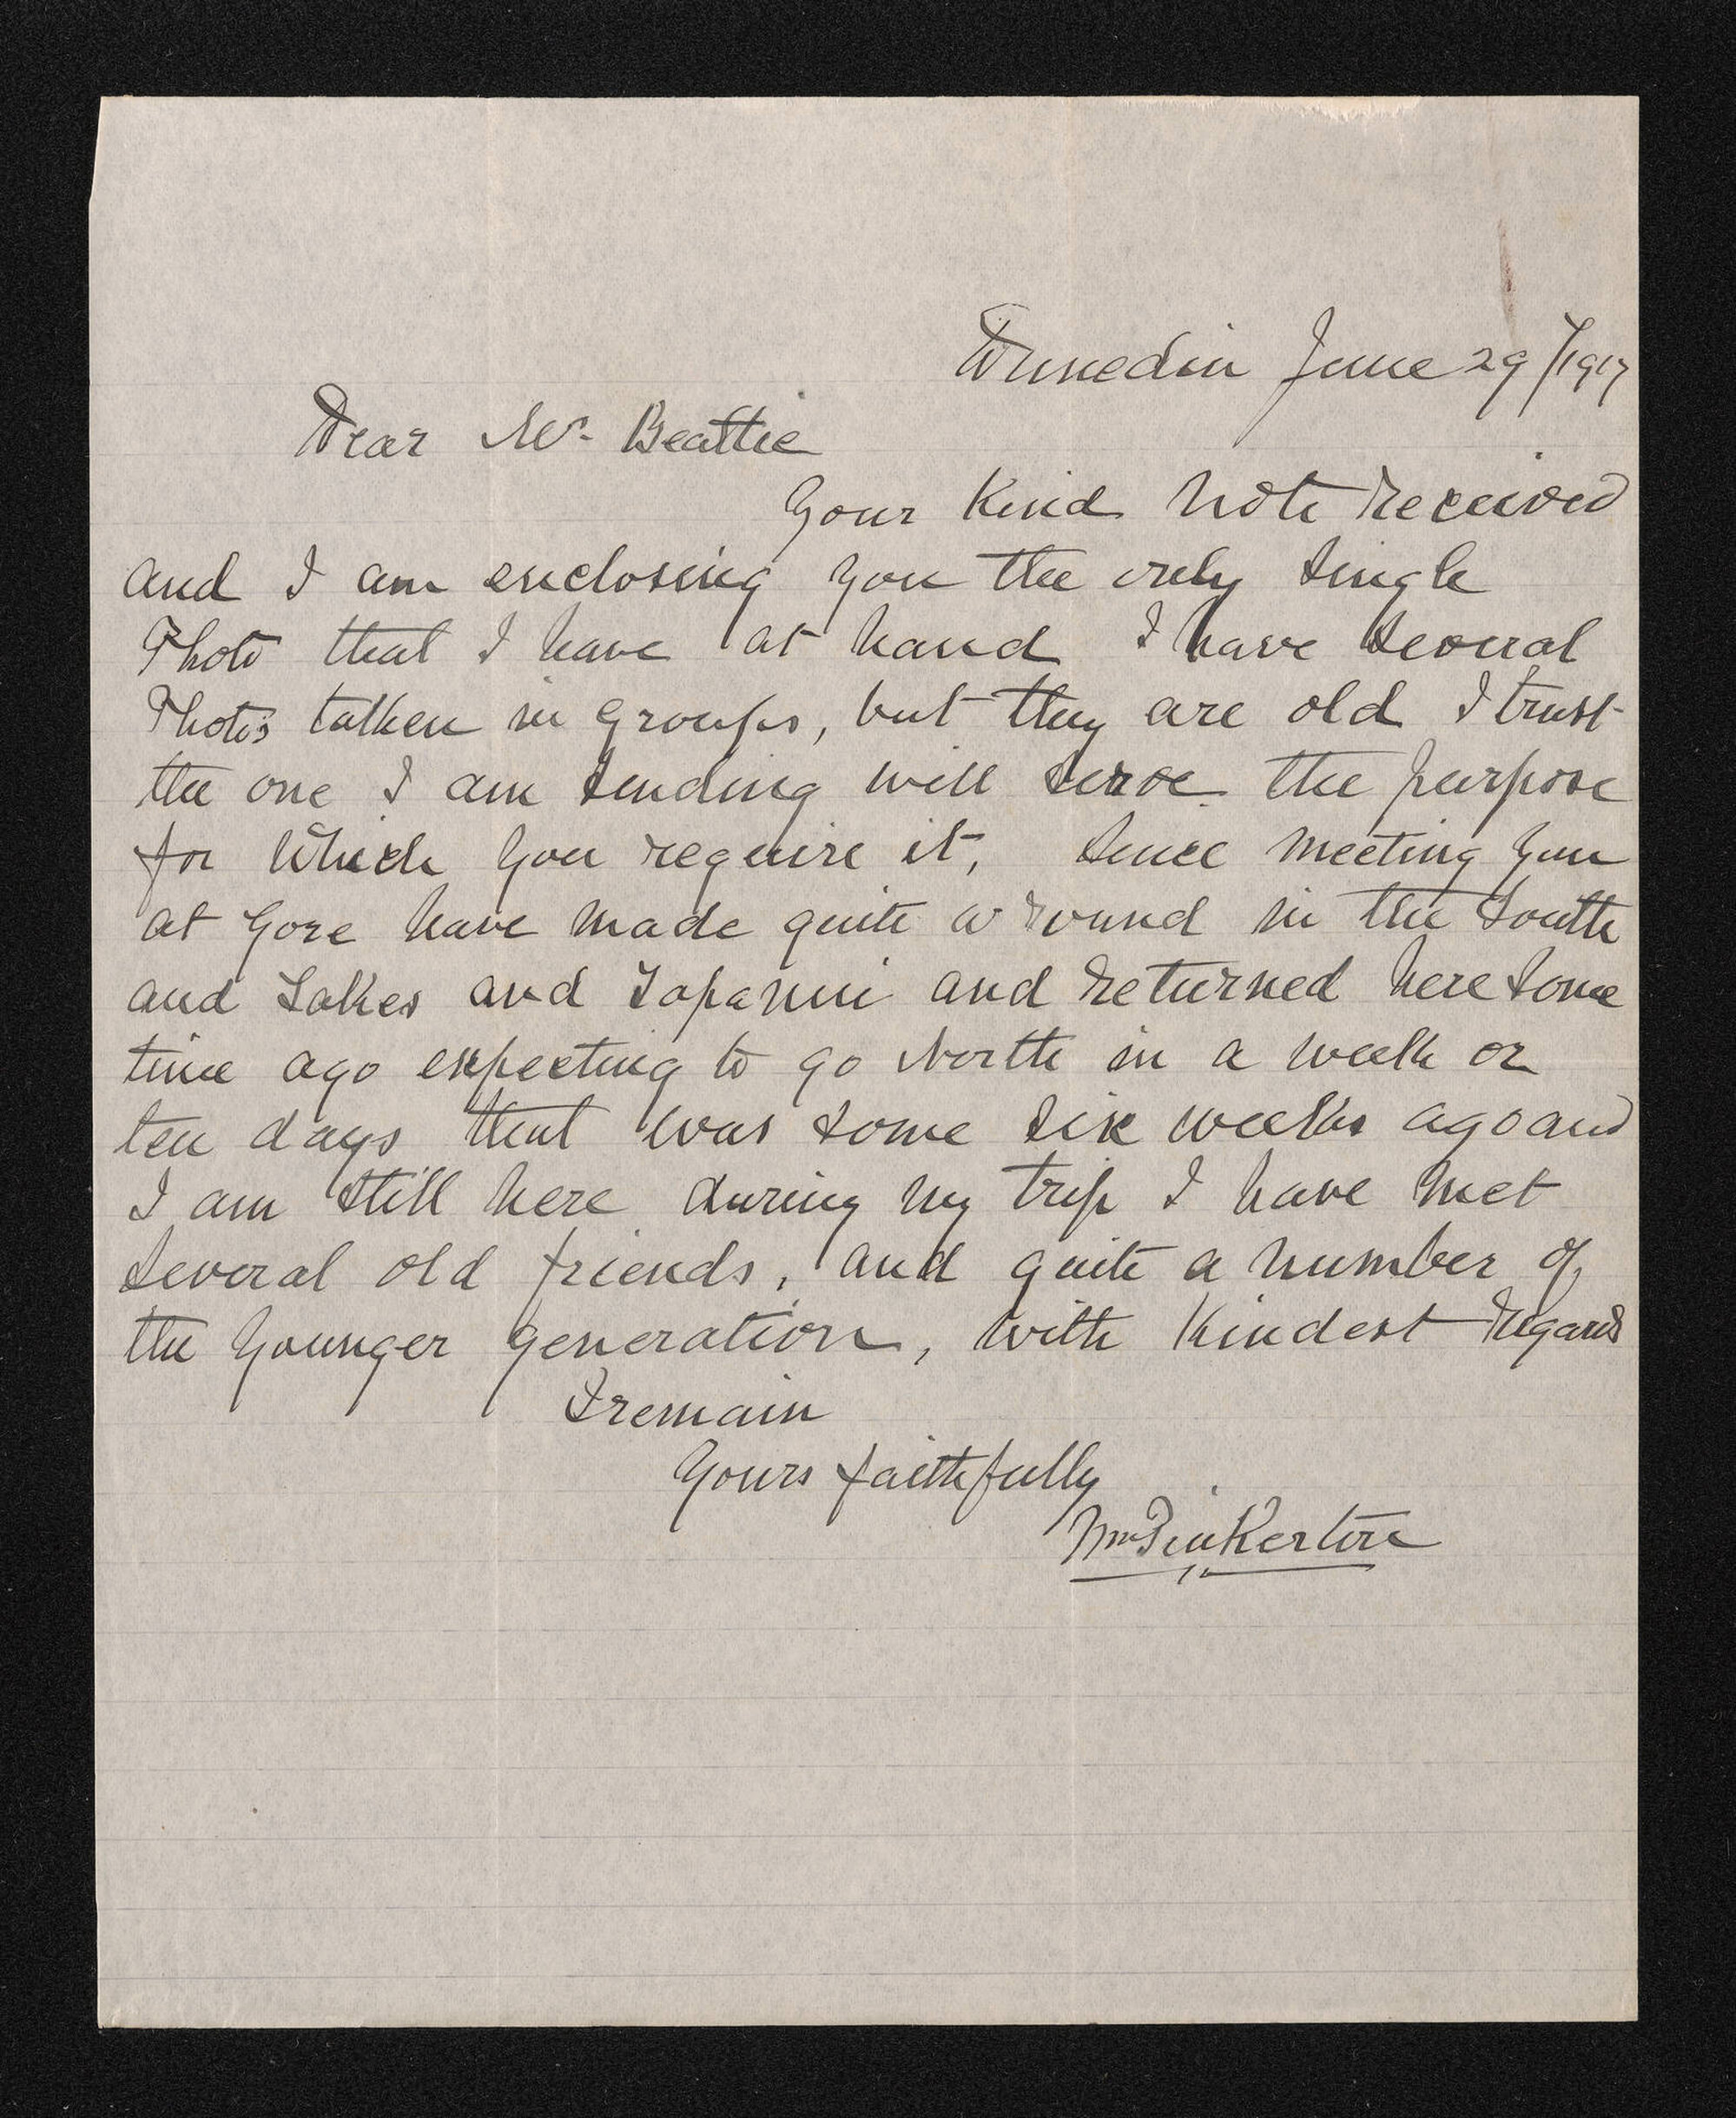 Dunedin June 29/1917
Dear Mr. Beattie
Your Kind Note Received
and I am enclosing you the only single
Photo that I have at hand I have several
Photo's taken in groups, but they are old I trust
the one I am sending will serve the purpose
for which you require it, Since meeting you
at Gore have made quite a round in the South
and Lakes and Tapanui and returned here some
time ago expecting to go North in a week or
ten days that was some six weeks ago and
I am still here during my trip I have met
several old friends, and quite a number of
the younger generation, with Kindest Regards
I remain
Yours faithfully
Wm Pinkerton